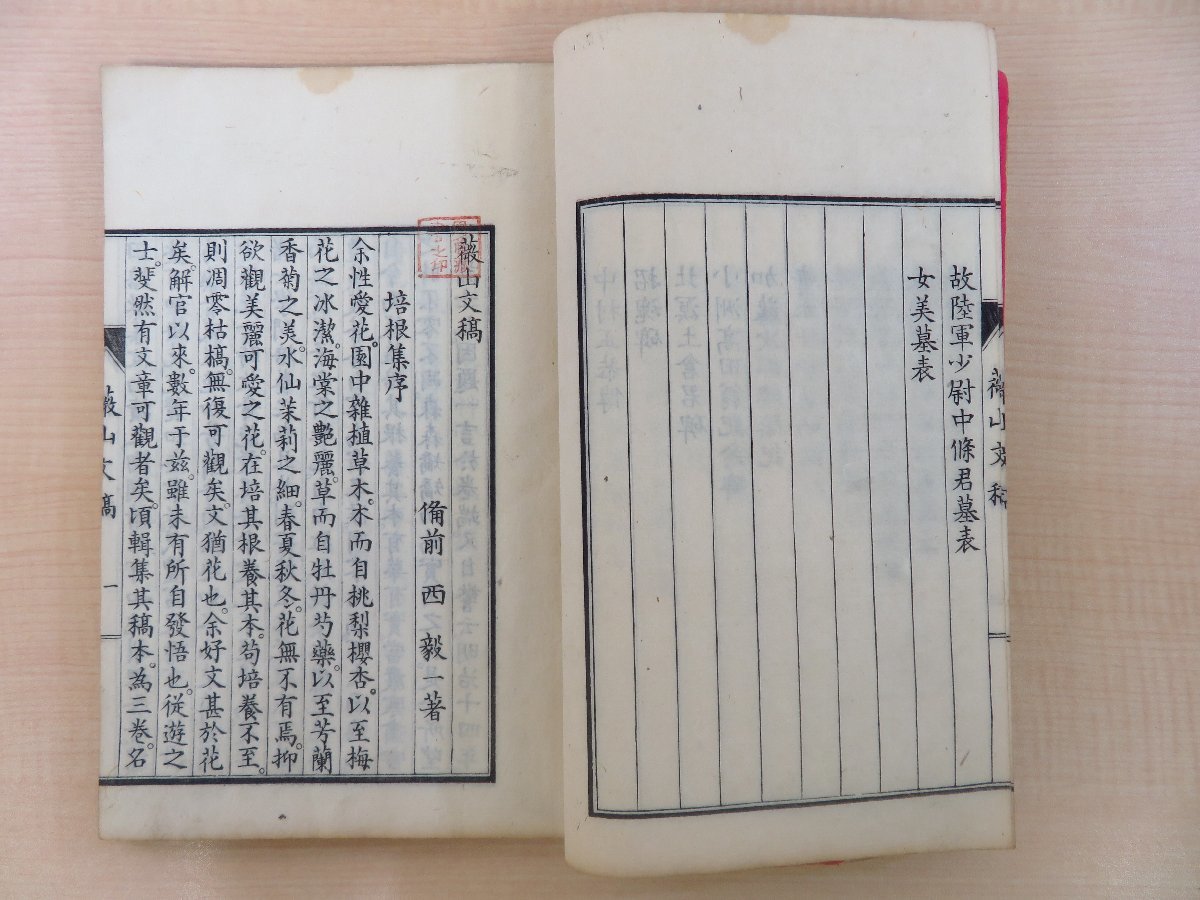 故陸軍少尉中條君墓表
女美墓表
薇山文稿
薇山文稿
備前 西 毅一著
培根集序
余性愛花。園中雜植草木。木而自桃梨櫻杏。以至梅
花之冰潔。海棠之艷麗。草而自牡丹芍藥。以至芳蘭
香菊之美。水仙茉莉之細。春夏秋冬。花無不有焉。抑
欲觀美麗可愛之花。在培其根養其本。苟培養不至。
則凋零枯槁。無復可觀矣。文猶花也。余好文甚於花
矣。解官以來。數年于茲。雖未有所自發悟也。從遊之
士。斐然有文章可觀者矣。頃輯集其稿本。為三卷。名
薇山文稿
一